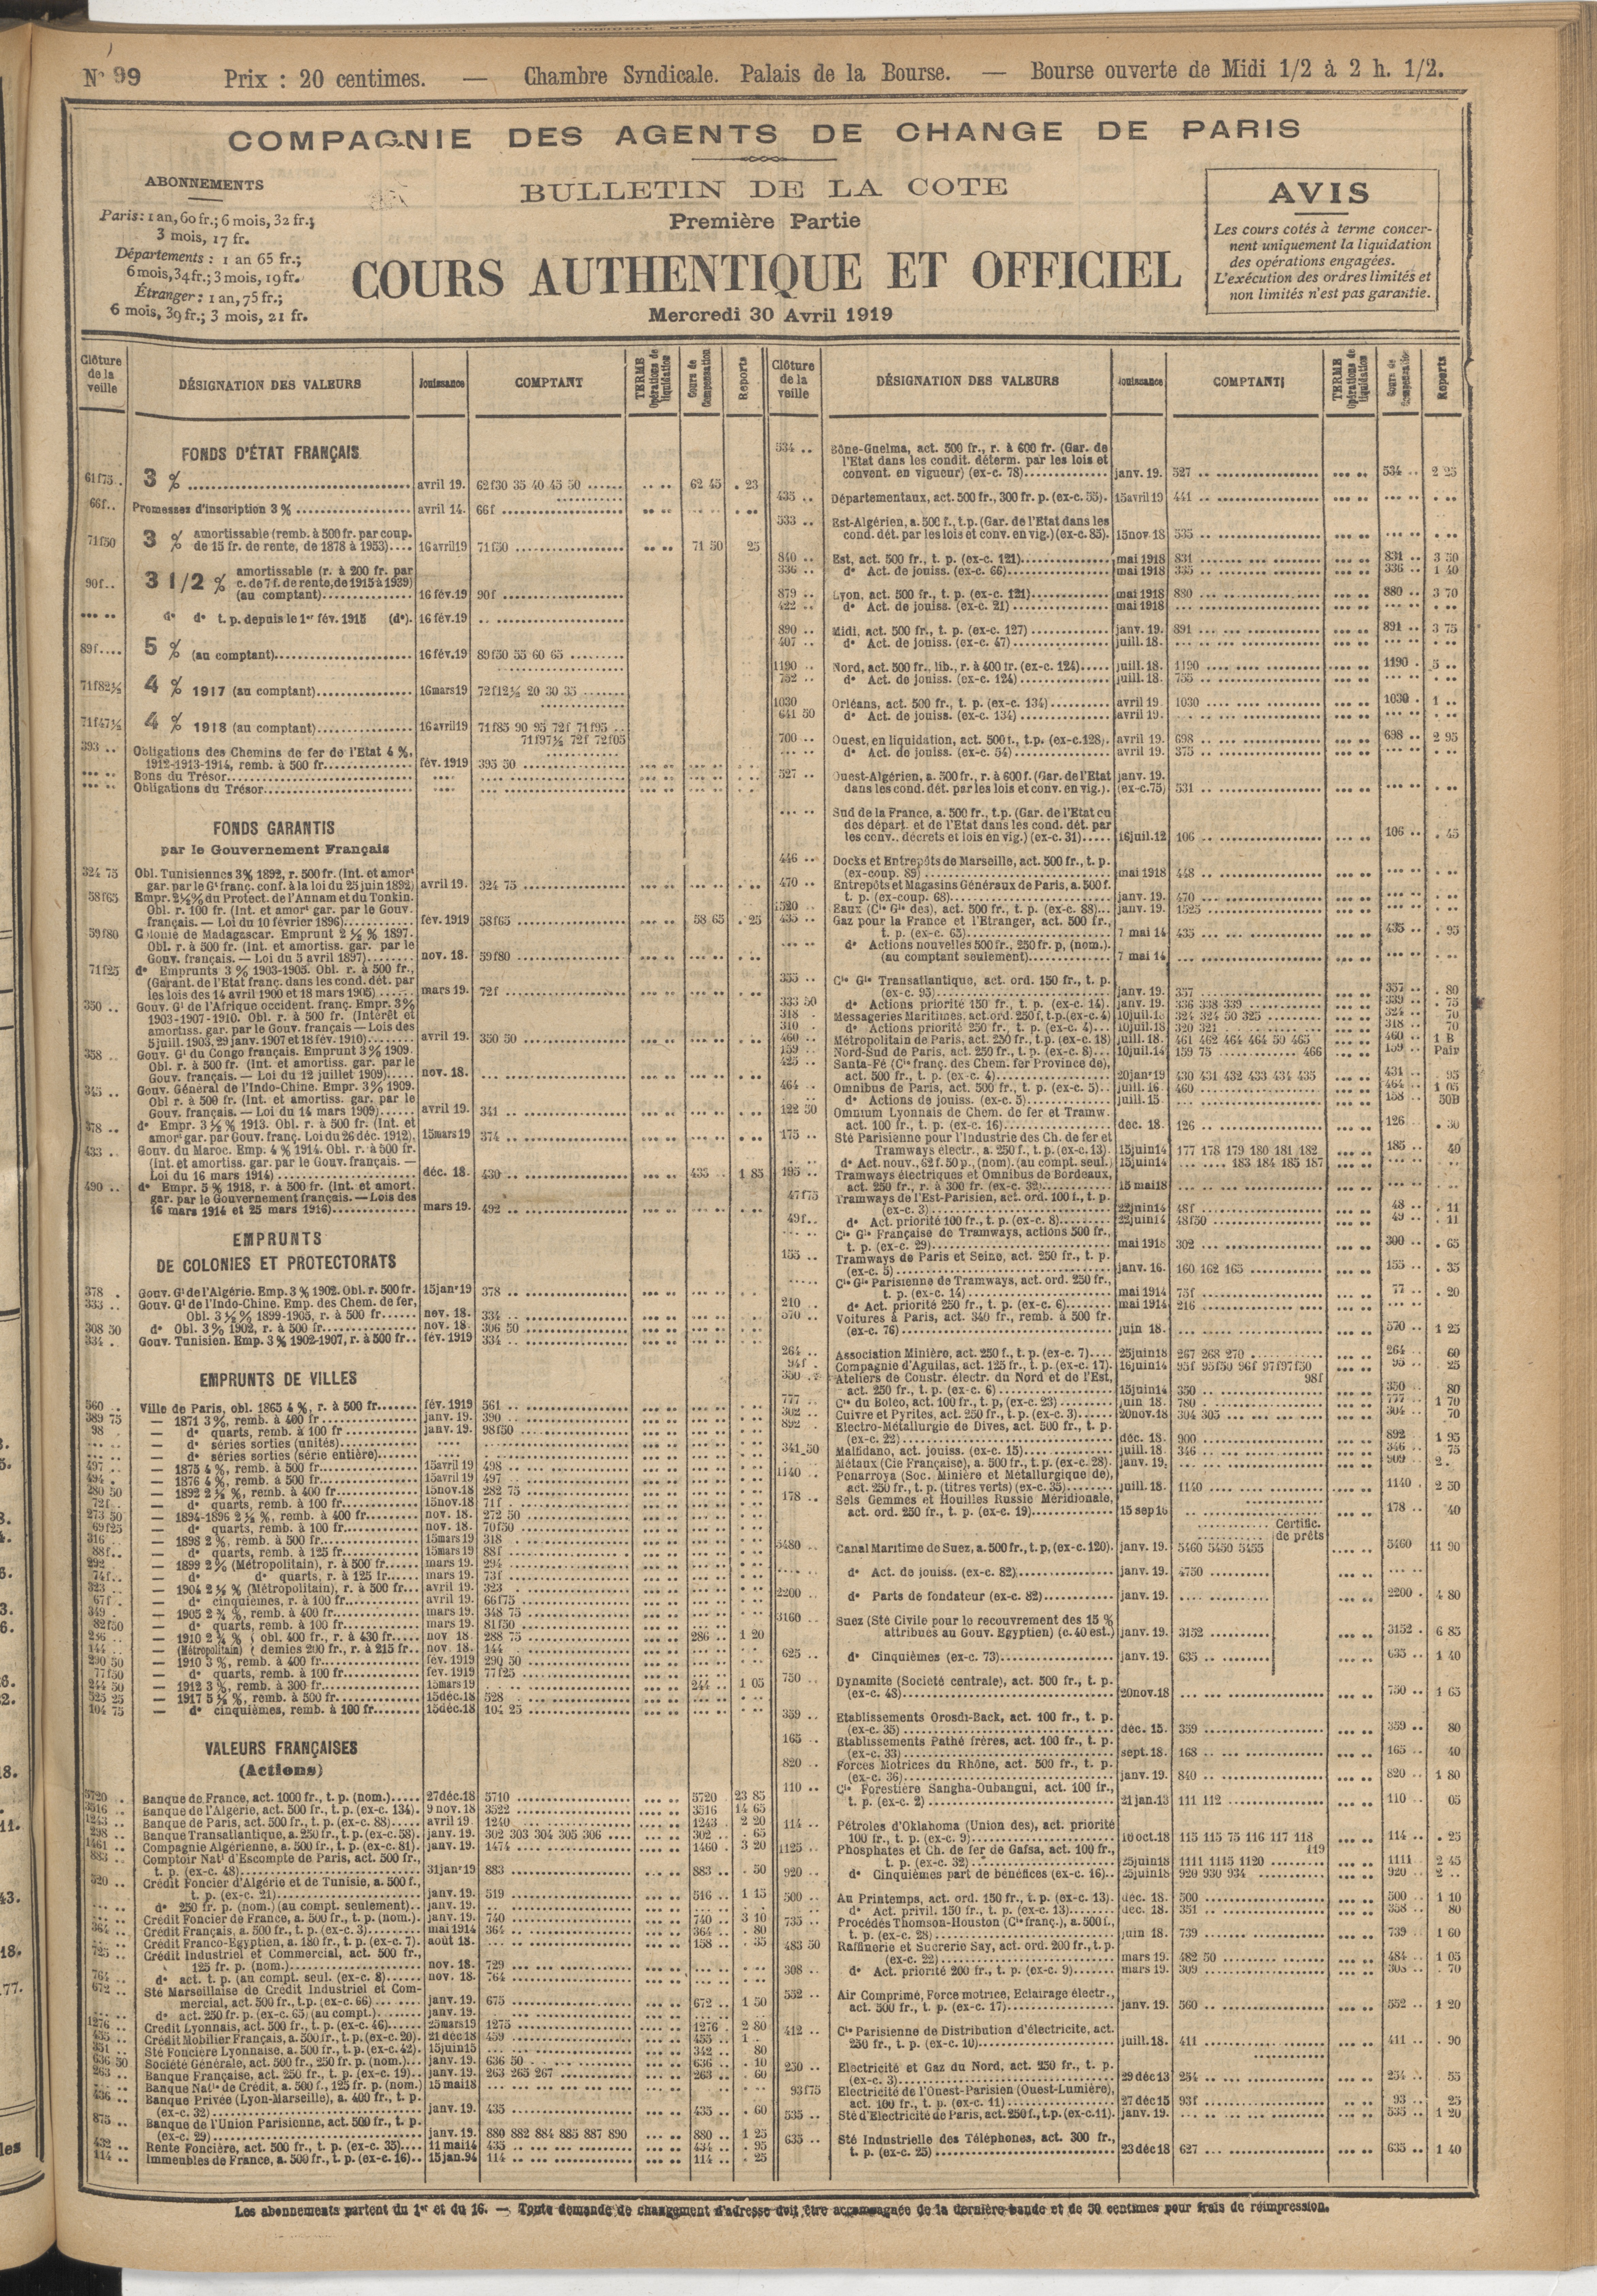 N° 99 Prix : 20 centimes. — Chambre Syndicale. Palais de la Bourse. — Bourse ouverte de Midi 1/2 à 2 h. 1/2.
COMPAGNIE DES AGENTS DE CHANGE DE PARIS
ABONNEMENTS
Paris: 1 an, 60 fr.; 6 mois, 32 fr.;
3 mois, 17 fr.
Départements : 1 an 65 fr.;
6 mois, 34 fr.; 3 mois, 19 fr.
Étranger : 1 an, 75 fr.;
6 mois, 39 fr.; 3 mois, 21 fr.
BULLETIN DE LA COTE
Première Partie
COURS AUTHENTIQUE ET OFFICIEL
Mercredi 30 Avril 1919
AVIS
Les cours cotés à terme concer-
nent uniquement la liquidation
des opérations engagées.
L'exécution des ordres limités et
non limités n'est pas garantie.
Clôture de la veille DÉSIGNATION DES VALEURS Jouissance COMPTANT TERME Opérations de liquidation Cours de Compensation Reports
FONDS D'ÉTAT FRANÇAIS
61f75 3 % avril 19. 62f30 35 40 45 50 62 45 . 23
66f.. Promesses d'inscription 3 % avril 14. 66f
71f50 3 % amortissable (remb. à 500 fr. par coup.
de 15 fr. de rente, de 1878 à 1953) 16 avril 19 71f50 71 50 25
90f.. 3 1/2 % amortissable (r. à 200 fr. par
c. de 7 f. de rente, de 1915 à 1939)
(au comptant) 16 fév. 19 90f
d° d° t. p. depuis le 1er fév. 1915 (d°). 16 fév. 19
89f.... 5 % (au comptant) 16 fév. 19 89f50 55 60 65
71f82½ 4 % 1917 (au comptant) 16 mars 19 72f12½ 20 30 35
71f47½ 4 % 1918 (au comptant) 16 avril 19 71f85 90 95 72f 71f95
71f97½ 72f 72f05
393 .. Obligations des Chemins de fer de l'Etat 4 %,
1912-1913-1914, remb. à 500 fr. fév. 1919 395 50
Bons du Trésor
Obligations du Trésor
FONDS GARANTIS
par le Gouvernement Français
324 75 Obl. Tunisiennes 3% 1892, r. 500 fr. (Int. et amort
gar. par le Gt franç. conf. à la loi du 25 juin 1892) avril 19. 324 75
58f65 Empr. 2½% du Protect. de l'Annam et du Tonkin.
Obl. r. 100 fr. (Int. et amort gar. par le Gouv.
français. — Loi du 10 février 1896) fév. 1919 58f65 58 65 . 25
59f80 Colonie de Madagascar. Emprunt 2 ½ % 1897.
Obl. r. à 500 fr. (Int. et amortiss. gar. par le
Gouv. français. — Loi du 5 avril 1897) nov. 18. 59f80
71f25 d° Emprunts 3 % 1903-1905. Obl. r. à 500 fr.,
(Garant. de l'Etat franç. dans les cond. dét. par
les lois des 14 avril 1900 et 18 mars 1905) mars 19. 72f
350 .. Gouv. Gt de l'Afrique occident. franç. Empr. 3%
1903-1907-1910. Obl. r. à 500 fr. (Intérêt et
amortiss. gar. par le Gouv. français — Lois des
5 juill. 1903, 29 janv. 1907 et 18 fév. 1910) avril 19. 350 50
358 .. Gouv. Gt du Congo français. Emprunt 3% 1909.
Obl. r. à 500 fr. (Int. et amortiss. gar. par le
Gouv. français. — Loi du 12 juillet 1909) nov. 18.
345 .. Gouv. Général de l'Indo-Chine. Empr. 3% 1909.
Obl r. à 500 fr. (Int. et amortiss. gar. par le
Gouv. français. — Loi du 14 mars 1909) avril 19. 341
378 .. d° Empr. 3 ½ % 1913. Obl. r. à 500 fr. (Int. et
amort gar. par Gouv. franç. Loi du 26 déc. 1912). 15 mars 19 374
433 .. Gouv. du Maroc. Emp. 4 % 1914. Obl. r. à 500 fr.
(Int. et amortiss. gar. par le Gouv. français. —
Loi du 16 mars 1914) déc. 18. 430 435 .. 1 85
490 .. d° Empr. 5 % 1918, r. à 500 fr. (Int. et amort.
gar. par le Gouvernement français. — Lois des
16 mars 1914 et 25 mars 1916) mars 19. 492
EMPRUNTS
DE COLONIES ET PROTECTORATS
378 . Gouv. Gt de l'Algérie. Emp. 3 % 1902. Obl. r. 500 fr. 15 janv 19 378
333 .. Gouv. Gt de l'Indo-Chine. Emp. des Chem. de fer,
Obl. 3 ½ % 1899-1905, r. à 500 fr. nov. 18. 334
308 50 d° Obl. 3 % 1902, r. à 500 fr. nov. 18. 306 50
334 . Gouv. Tunisien. Emp. 3 % 1902-1907, r. à 500 fr. fév. 1919 334
EMPRUNTS DE VILLES
560 .. Ville de Paris, obl. 1865 4 %, r. à 500 fr. fév. 1919 561
389 75 — 1871 3 %, remb. à 400 fr. janv. 19. 390
98 — d° quarts, remb. à 100 fr. janv. 19. 98f50
— d° séries sorties (unités)
— d° séries sorties (série entière)
497 .. — 1875 4 %, remb. à 500 fr. 15 avril 19 498
494 . — 1876 4 %, remb. à 500 fr. 15 avril 19 497
280 50 — 1892 2 ½ %, remb. à 400 fr. 15 nov. 18 282 75
72f.. — d° quarts, remb. à 100 fr. 15 nov. 18 71f
273 50 — 1894-1896 2 ½ %, remb. à 400 fr. nov. 18. 272 50
69f25 — d° quarts, remb. à 100 fr. nov. 18. 70f50
316 — 1898 2 %, remb. à 500 fr. 15 mars 19 318
88f.. — d° quarts, remb. à 125 fr. 15 mars 19 88f
292 — 1899 2 % (Métropolitain), r. à 500 fr. mars 19. 294
74f.. — d° d° quarts, r. à 125 fr. mars 19. 73f
323 .. — 1904 2 ½ % (Métropolitain), r. à 500 fr. avril 19. 323
67f . — d° cinquièmes, r. à 100 fr. avril 19. 66f75
349 . — 1905 2 ¾ %, remb. à 400 fr. mars 19. 348 75
82f50 — d° quarts, remb. à 100 fr. mars 19. 81f50
286 .. — 1910 2 ¾ % obl. 400 fr., r. à 430 fr. nov 18. 288 75 286 .. 1 20
144 .. — (Métropolitain) demies 200 fr., r. à 215 fr. nov. 18. 144
290 50 — 1910 3 %, remb. à 400 fr. fév. 1919 290 50
77f50 — d° quarts, remb. à 100 fr. fév. 1919 77f25
244 50 — 1912 3 %, remb. à 300 fr. 15 mars 19 244 .. 1 05
525 25 — 1917 5 ½ %, remb. à 500 fr. 15 déc. 18 528
104 75 — d° cinquièmes, remb. à 100 fr. 15 déc. 18 104 25
VALEURS FRANÇAISES
(Actions)
5720 . Banque de France, act. 1000 fr., t. p. (nom.) 27 déc. 18 5710 5720 23 85
3516 .. Banque de l'Algérie, act. 500 fr., t. p. (ex-c. 134). 9 nov. 18 3522 3516 14 65
1243 .. Banque de Paris, act. 500 fr., t. p. (ex-c. 88) avril 19 1240 1243 2 20
298 .. Banque Transatlantique, a. 250 fr., t. p. (ex-c. 58). janv. 19. 302 303 304 305 306 302 . 65
1461 Compagnie Algérienne, a. 500 fr., t. p. (ex-c. 81). janv. 19. 1474 1460 3 20
883 .. Comptoir Natl d'Escompte de Paris, act. 500 fr.,
t. p. (ex-c. 48) 31 janv 19 883 883 .. . 50
520 .. Crédit Foncier d'Algérie et de Tunisie, a. 500 f.,
t. p. (ex-c. 21) janv. 19. 519 516 .. 1 15
d° 250 fr. p. (nom.) (au compt. seulement) janv. 19.
Crédit Foncier de France, a. 500 fr., t. p. (nom.). janv. 19. 740 740 .. 3 10
364 .. Crédit Français, a. 500 fr., t. p. (ex-c. 3) mai 1914 364 364 .. . 80
Crédit Franco-Egyptien, a. 180 fr., t. p. (ex-c. 7). août 18. 158 .. . 35
725 .. Crédit Industriel et Commercial, act. 500 fr.,
125 fr. p. (nom.) nov. 18. 729
764 .. d° act. t. p. (au compt. seul. (ex-c. 8) nov. 18. 764
672 .. Sté Marseillaise de Crédit Industriel et Com-
mercial, act. 500 fr., t. p. (ex-c. 66) janv. 19. 675 672 .. 1 50
d° act. 250 fr. p. (ex-c. 65) (au compt.) janv. 19.
1276 .. Crédit Lyonnais, act. 500 fr., t. p. (ex-c. 46) 25 mars 19 1275 1276 .. 2 80
455 .. Crédit Mobilier Français, a. 500 fr., t. p. (ex-c. 20). 21 déc 18 459 455 .. 1 .
351 .. Sté Foncière Lyonnaise, a. 500 fr., t. p. (ex-c. 42). 15 juin 15 342 .. 80
636 50 Société Générale, act. 500 fr., 250 fr. p. (nom.) janv. 19. 636 50 636 .. . 10
263 .. Banque Française, act. 250 fr., t. p. (ex-c. 19) janv. 19. 263 265 267 263 .. . 60
Banque Natle de Crédit, a. 500 f., 125 fr. p. (nom) 15 mai 18
436 .. Banque Privée (Lyon-Marseille), a. 400 fr., t. p.
(ex-c. 32) janv. 19. 435 435 .. . 60
875 .. Banque de l'Union Parisienne, act. 500 fr., t. p.
(ex-c. 29) janv. 19. 880 882 884 885 887 890 880 .. 1 25
432 .. Rente Foncière, act. 500 fr., t. p. (ex-c. 35) 11 mai 14 435 434 .. . 95
114 .. Immeubles de France, a. 500 fr., t. p. (ex-c. 16) 15 jan. 94 114 114 .. . 25
Clôture de la veille DÉSIGNATION DES VALEURS Jouissance COMPTANT TERME Opérations de liquidation Cours de Compensation Reports
534 .. Bône-Guelma, act. 500 fr., r. à 600 fr. (Gar. de
l'Etat dans les condit. déterm. par les lois et
convent. en vigueur) (ex-c. 78) janv. 19. 527 534 .. 2 25
435 .. Départementaux, act. 500 fr., 300 fr. p. (ex-c. 55). 15 avril 19 441
533 .. Est-Algérien, a. 500 f., t. p. (Gar. de l'Etat dans les
cond. dét. par les lois et conv. en vig.) (ex-c. 85). 15 nov. 18 535
840 .. Est, act. 500 fr., t. p. (ex-c. 121) mai 1918 831 831 .. 3 50
336 .. d° Act. de jouiss. (ex-c. 66) mai 1918 335 336 .. 1 40
879 .. Lyon, act. 500 fr., t. p. (ex-c. 121) mai 1918 880 880 .. 3 70
422 .. d° Act. de jouiss. (ex-c. 21) mai 1918
890 .. Midi, act. 500 fr., t. p. (ex-c. 127) janv. 19. 891 891 .. 3 75
407 .. d° Act. de jouiss. (ex-c. 47) juill. 18.
1190 .. Nord, act. 500 fr., lib., r. à 400 fr. (ex-c. 124) juill. 18. 1190 1190 . 5 ..
752 .. d° Act. de jouiss. (ex-c. 124) juill. 18. 755
1030 Orléans, act. 500 fr., t. p. (ex-c. 134) avril 19. 1030 1030 . 1 ..
641 50 d° Act. de jouiss. (ex-c. 134) avril 19.
700 .. Ouest, en liquidation, act. 500 f., t. p. (ex-c. 128). avril 19. 698 698 .. 2 95
d° Act. de jouiss. (ex-c. 54) avril 19. 375
527 .. Ouest-Algérien, a. 500 fr., r. à 600 f. (Gar. de l'Etat janv. 19.
dans les cond. dét. par les lois et conv. en vig.). (ex-c. 75) 531
Sud de la France, a. 500 fr., t. p. (Gar. de l'Etat ou
des départ. et de l'Etat dans les cond. dét. par
les conv., décrets et lois en vig.) (ex-c. 31) 16 juil. 12 106 106 .. . 45
446 .. Docks et Entrepôts de Marseille, act. 500 fr., t. p.
(ex-coup. 89) mai 1918 448
470 .. Entrepôts et Magasins Généraux de Paris, a. 500 f.
t. p. (ex-coup. 68) janv. 19. 470
1520 .. Eaux (Cie Gle des), act. 500 fr., t. p. (ex-c. 88) janv. 19. 1525
435 .. Gaz pour la France et l'Etranger, act. 500 fr.,
t. p. (ex-c. 65) 7 mai 14 435 435 .. . 95
d° Actions nouvelles 500 fr., 250 fr. p. (nom.).
(au comptant seulement) 7 mai 14
355 .. Cie Gle Transatlantique, act. ord. 150 fr., t. p.
(ex-c. 95) janv. 19. 357 357 .. . 80
333 50 d° Actions priorité 150 fr., t. p. (ex-c. 14). janv. 19. 336 338 339 339 .. . 75
318 . Messageries Maritimes, act. ord. 250 f., t. p. (ex-c. 4) 10 juil. 18 324 324 50 325 324 .. 70
310 . d° Actions priorité 250 fr., t. p. (ex-c. 4) 10 juil. 18 320 321 318 .. 70
460 .. Métropolitain de Paris, act. 250 fr., t. p. (ex-c. 18) juill. 18. 461 462 464 464 50 465 460 .. 1 B
159 .. Nord-Sud de Paris, act. 250 fr., t. p. (ex-c. 8) 10 juil. 14 159 75 466 159 .. Pair
425 .. Santa-Fé (Cie franç. des Chem. fer Province de),
act. 500 fr., t. p. (ex-c. 4) 20 jan 19 430 431 432 433 434 435 431 .. . 95
464 .. Omnibus de Paris, act. 500 fr., t. p. (ex-c. 5) juill. 16. 460 464 .. 1 05
d° Actions de jouiss. (ex-c. 5) juill. 15. 158 .. 50B
122 50 Omnium Lyonnais de Chem. de fer et Tramw.
act. 100 fr., t. p. (ex-c. 16) déc. 18. 126 126 . . 30
175 .. Sté Parisienne pour l'Industrie des Ch. de fer et
Tramways électr., a. 250 f., t. p. (ex-c. 13). 15 juin 14 177 178 179 180 181 182 185 .. 40
d° Act. nouv., 62 f. 50 p. (nom). (au compt. seul.) 15 juin 14 183 184 185 187
195 .. Tramways électriques et Omnibus de Bordeaux,
act. 250 fr., r. à 300 fr. (ex-c. 32) 15 mai 18
47f75 Tramways de l'Est-Parisien, act. ord. 100 f., t. p.
(ex-c. 3) 22 juin 14 48f 48 .. . 11
49f.. d° Act. priorité 100 fr., t. p. (ex-c. 8) 22 juin 14 48f50 49 .. . 11
Cie Gle Française de Tramways, actions 500 fr.,
t. p. (ex-c. 29) mai 1918 302 300 .. . 65
155 .. Tramways de Paris et Seine, act. 250 fr., t. p.
(ex-c. 5) janv. 16. 160 162 165 155 .. . 35
Cie Gle Parisienne de Tramways, act. ord. 250 fr.,
t. p. (ex-c. 14) mai 1914 75f 77 .. . 20
210 .. d° Act. priorité 250 fr., t. p. (ex-c. 6) mai 1914 216
570 .. Voitures à Paris, act. 340 fr., remb. à 500 fr.
(ex-c. 76) juin 18. 570 .. 1 25
264 .. Association Minière, act. 250 f., t. p. (ex-c. 7) 25 juin 18 267 268 270 264 .. 60
94f . Compagnie d'Aguilas, act. 125 fr., t. p. (ex-c. 17). 16 juin 14 95f 95f50 96f 97f 97f50 95 .. 25
98f
350 .. Ateliers de Constr. électr. du Nord et de l'Est,
act. 250 fr., t. p. (ex-c. 6) 15 juin 14 350 350 .. 80
777 .. Cie du Boleo, act. 100 fr., t. p. (ex-c. 23) juin 18. 780 777 .. 1 70
302 .. Cuivre et Pyrites, act. 250 fr., t. p. (ex-c. 3) 20 nov. 18 304 305 304 .. 70
892 .. Electro-Métallurgie de Dives, act. 500 fr., t. p.
(ex-c. 22) déc. 18. 900 892 1 95
341 50 Malfidano, act. jouiss. (ex-c. 15) juill. 18. 346 346 .. 75
Métaux (Cie Française), a. 500 fr., t. p. (ex-c. 28). janv. 19. 909 .. 2 .
1140 .. Penarroya (Soc. Minière et Métallurgique de),
act. 250 fr., t. p. (titres verts) (ex-c. 35) juill. 18. 1140 1140 . 2 50
178 .. Sels Gemmes et Houilles Russie Méridionale,
act. ord. 250 fr., t. p. (ex-c. 19) 15 sep 16 178 .. 40
Certific.
de prêts
5480 .. Canal Maritime de Suez, a. 500 fr., t. p. (ex-c. 120). janv. 19. 5460 5450 5455 5460 11 90
d° Act. de jouiss. (ex-c. 82) janv. 19. 4750
2200 .. d° Parts de fondateur (ex-c. 82) janv. 19. 2200 . 4 80
3160 .. Suez (Sté Civile pour le recouvrement des 15 %
attribués au Gouv. Egyptien) (c. 40 est.) janv. 19. 3152 3152 .. 6 85
625 .. d° Cinquièmes (ex-c. 73) janv. 19. 635 635 .. 1 40
750 .. Dynamite (Societé centrale), act. 500 fr., t. p.
(ex-c. 48) 20 nov. 18 750 .. 1 65
359 .. Etablissements Orosdi-Back, act. 100 fr., t. p.
(ex-c. 35) déc. 15. 359 359 .. 80
165 .. Etablissements Pathé frères, act. 100 fr., t. p.
(ex-c. 33) sept. 18. 168 165 .. 40
820 .. Forces Motrices du Rhône, act. 500 fr., t. p.
(ex-c. 36) janv. 19. 840 820 .. 1 80
110 .. Cie Forestière Sangha-Oubangui, act. 100 fr.,
t. p. (ex-c. 2) 21 jan. 13 111 112 110 .. 05
114 .. Pétroles d'Oklahoma (Union des), act. priorité
100 fr., t. p. (ex-c. 9) 10 oct. 18 115 115 75 116 117 118 114 .. . 25
119
1125 .. Phosphates et Ch. de fer de Gafsa, act. 100 fr.,
t. p. (ex-c. 32) 25 juin 18 1111 1115 1120 1111 .. 2 45
920 .. d° Cinquièmes part de bénéfices (ex-c. 16) 25 juin 18 920 930 934 920 .. 2 ..
500 .. Au Printemps, act. ord. 150 fr., t. p. (ex-c. 13). déc. 18. 500 500 .. 1 10
d° Act. privil. 150 fr., t. p. (ex-c. 13) déc. 18. 351 358 .. 80
735 .. Procédés Thomson-Houston (Cie franç.), a. 500 f.,
t. p. (ex-c. 28) juin 18. 739 739 .. 1 60
483 50 Raffinerie et Sucrerie Say, act. ord. 200 fr., t. p.
(ex-c. 22) mars 19. 482 50 484 .. 1 05
308 .. d° Act. priorité 200 fr., t. p. (ex-c. 9) mars 19. 309 308 .. . 70
552 .. Air Comprimé, Force motrice, Eclairage électr.,
act. 500 fr., t. p. (ex-c. 17) janv. 19. 560 552 .. 1 20
412 .. Cie Parisienne de Distribution d'électricite, act.
250 fr., t. p. (ex-c. 10) juill. 18. 411 411 .. . 90
250 .. Electricité et Gaz du Nord, act. 250 fr., t. p.
(ex-c. 3) 29 déc 13 254 254 .. 55
93f75 Electricité de l'Ouest-Parisien (Ouest-Lumière),
act. 100 fr., t. p. (ex-c. 11) 27 déc 15 93f 93 .. 25
535 .. Sté d'Electricité de Paris, act. 250 f., t. p. (ex-c. 11). janv. 19. 535 .. 1 20
635 .. Sté Industrielle des Téléphones, act. 300 fr.,
t. p. (ex-c. 25) 23 déc 18 627 635 .. 1 40
Les abonnements partent du 1er et du 16. — Toute demande de changement d'adresse doit être accompagnée de la dernière bande et de 50 centimes pour frais de réimpression.